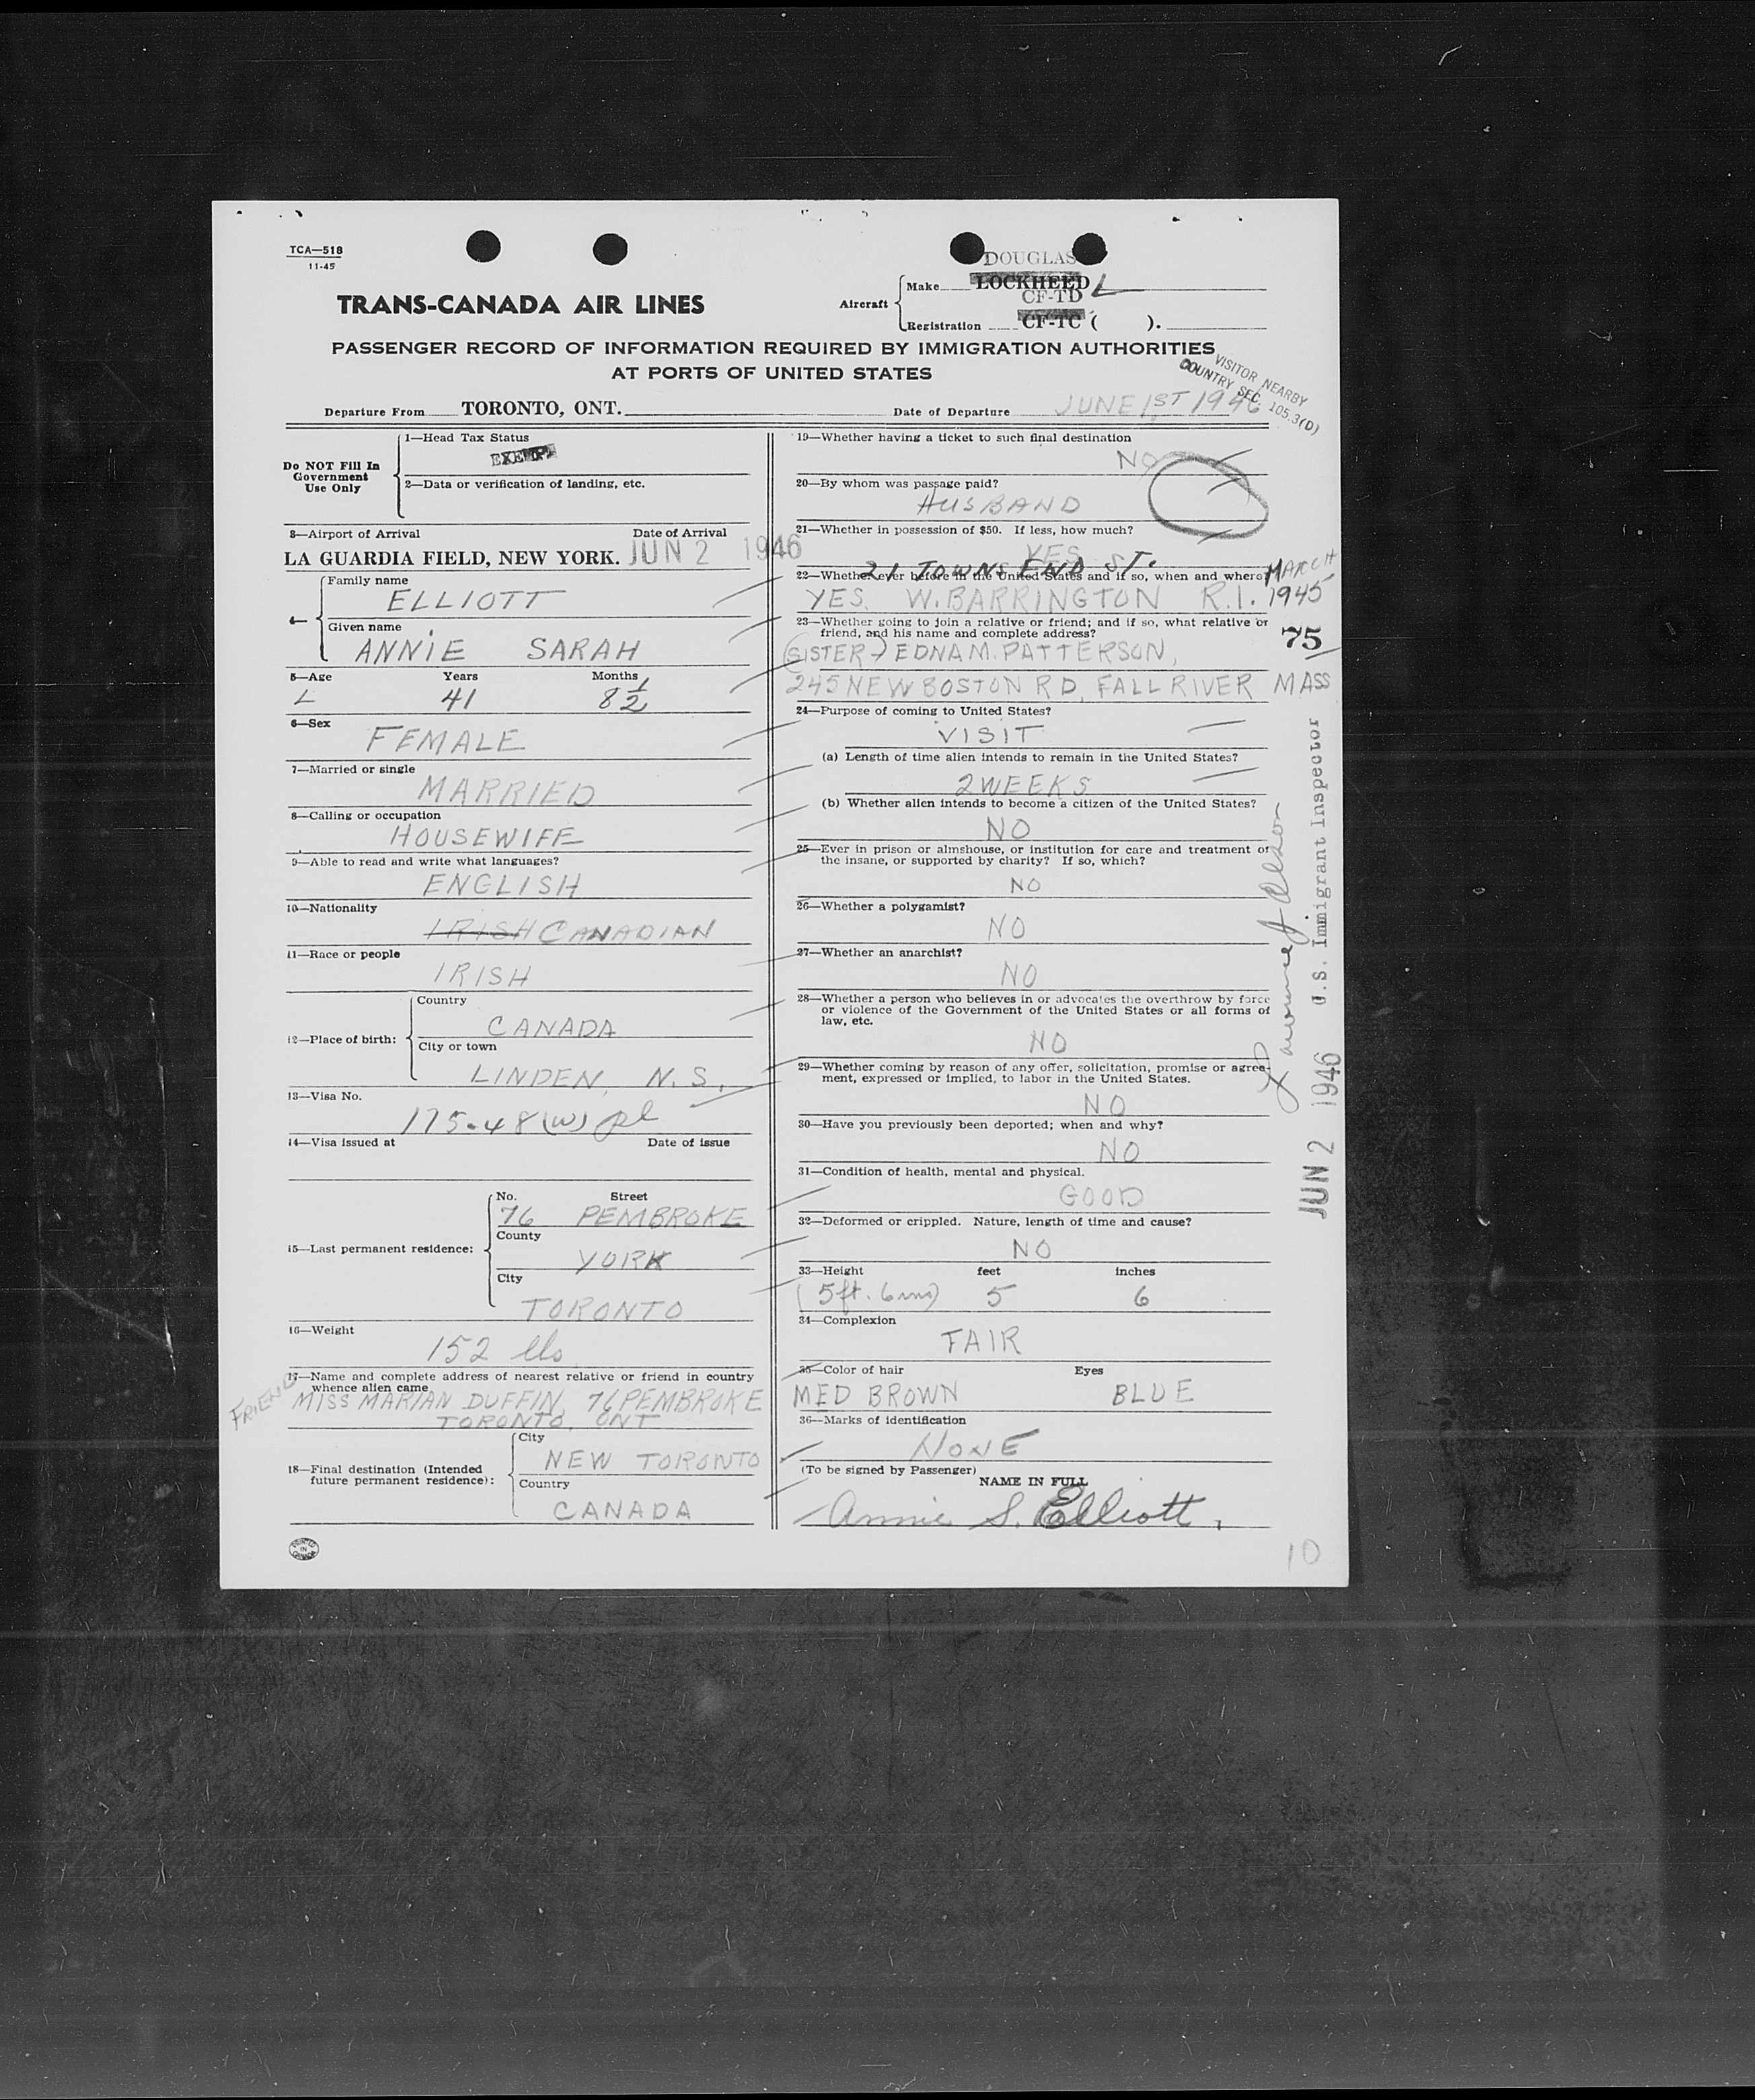 TCA—518
11-45
DOUGLAS
Make LOCKHEED L
CF-TD
Aircraft
Registration CF-TC ( ).
TRANS-CANADA AIR LINES
PASSENGER RECORD OF INFORMATION REQUIRED BY IMMIGRATION AUTHORITIES
AT PORTS OF UNITED STATES
VISITOR NEARBY
COUNTRY SEC. 105.3(D)
Departure From TORONTO, ONT. Date of Departure JUNE 1ST 1946
Do NOT Fill In
Government
Use Only
1—Head Tax Status
EXEMPT
2—Data or verification of landing, etc.
3—Airport of Arrival Date of Arrival
LA GUARDIA FIELD, NEW YORK. JUN 2 1946
4—
Family name
ELLIOTT
Given name
ANNIE SARAH
5—Age Years Months
41 8 1/2
6—Sex
FEMALE
7—Married or single
MARRIED
8—Calling or occupation
HOUSEWIFE
9—Able to read and write what languages?
ENGLISH
10—Nationality
IRISH CANADIAN
11—Race or people
IRISH
12—Place of birth:
Country
CANADA
City or town
LINDEN, N.S.
13—Visa No.
175-48 (W)
14—Visa issued at Date of issue
15—Last permanent residence:
No. Street
76 PEMBROKE
County
YORK
City
TORONTO
16—Weight
152 lbs
17—Name and complete address of nearest relative or friend in country
whence alien came
FRIEND
MISS MARIAN DUFFIN, 76 PEMBROKE
TORONTO, ONT
18—Final destination (Intended
future permanent residence):
City
NEW TORONTO
Country
CANADA
19—Whether having a ticket to such final destination
NO
20—By whom was passage paid?
HUSBAND
21—Whether in possession of $50. If less, how much?
YES
21 TOWNSEND ST.
22—Whether ever before in the United States and if so, when and where?
MARCH
YES. W. BARRINGTON R.I. 1945
23—Whether going to join a relative or friend; and if so, what relative or
friend, and his name and complete address?
75
(SISTER) EDNA M. PATTERSON,
245 NEW BOSTON RD, FALL RIVER MASS
24—Purpose of coming to United States?
VISIT
(a) Length of time alien intends to remain in the United States?
2 WEEKS
(b) Whether alien intends to become a citizen of the United States?
NO
25—Ever in prison or almshouse, or institution for care and treatment of
the insane, or supported by charity? If so, which?
NO
26—Whether a polygamist?
NO
27—Whether an anarchist?
NO
28—Whether a person who believes in or advocates the overthrow by force
or violence of the Government of the United States or all forms of
law, etc.
NO
29—Whether coming by reason of any offer, solicitation, promise or agree-
ment, expressed or implied, to labor in the United States.
NO
30—Have you previously been deported; when and why?
NO
31—Condition of health, mental and physical.
GOOD
32—Deformed or crippled. Nature, length of time and cause?
NO
33—Height feet inches
(5ft. 6ins) 5 6
34—Complexion
FAIR
35—Color of hair Eyes
MED BROWN BLUE
36—Marks of identification
NONE
(To be signed by Passenger)
NAME IN FULL
Annie S. Elliott.
U.S. Immigrant Inspector
JUN 2 1946
10